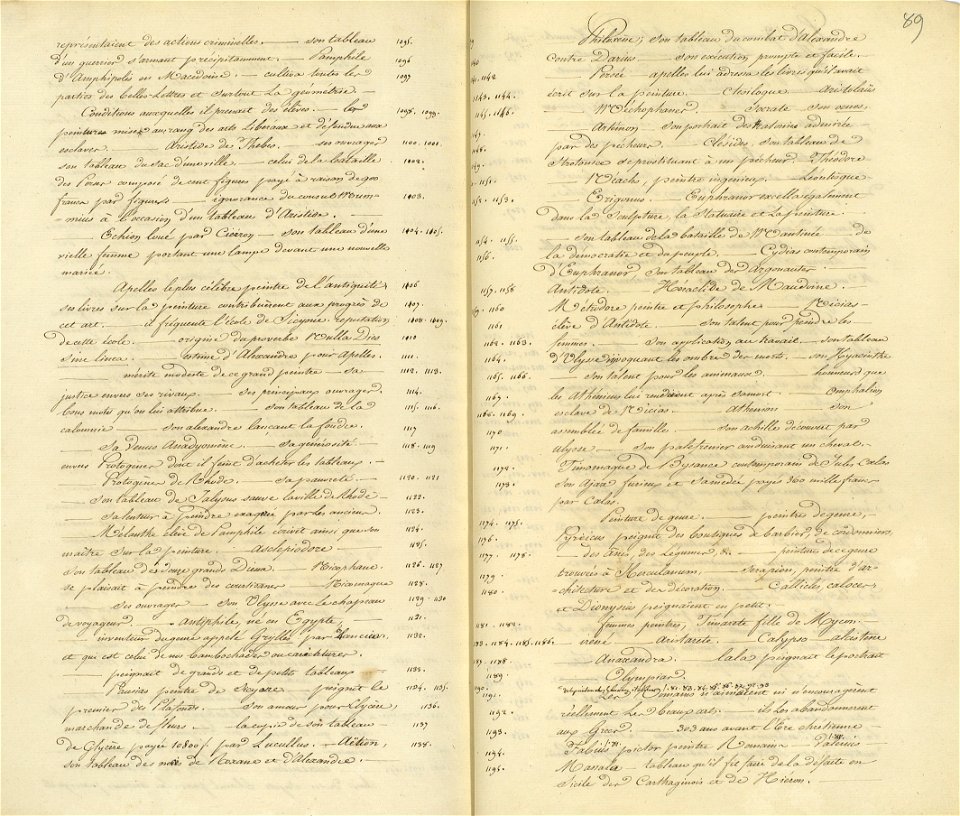 représentaient des actions criminelles. — son tableau 1095.
d'un guerrier s'armant précipitamment. — Pamphile 1096
d'Amphipolis en Macédoine. — cultiva toutes les 1097
parties des belles-Lettres et surtout La géométrie. —
Conditions auxquelles il prenait des élèves. — les 1098. 1099.
peintures mises au rang des arts libéraux et défendue aux
esclaves. — Aristide de Thebes. — ses ouvrages 1100. 1001.
son tableau du sac d'une ville. — celui de la bataille 1002.
des Perses composé de cent figures payé à raison de 900
francs par figures — ignorance du consul Mum- 1003.
-mius à l'occasion d'un tableau d'Aristide. —
Echion loué par Ciceron — son tableau d'une 1104. 1105.
vieille femme portant une lampe devant une nouvelle
mariée.
Apelles le plus célèbre peintre de l'antiquité, 1106
ses livres sur la peinture contribuèrent aux progrès de 1107.
cet art. — il fréquente l'école de Sicyone. réputation 1108. 1109.
de cette école. — origine du proverbe Nulla Dies 1110
Sine linea. — estime d'Alexandre pour Apelles. 1111.
— mérite modeste de ce grand peintre — sa 1112. 1113.
justice envers ses rivaux. — ses principaux ouvrages. 1114.
bons mots qu'on lui attribue. — son tableau de la 1115. 1116.
calomnie — son alexandre lançant la foudre. 1117
— Sa Venus Anadyomène. — Sa générosité — 1118. 1119
envers Protogènes dont il feint d'acheter les tableaux. —
Protogènes de Rhode. — sa pauvreté — 1120. 1121
— son tableau de Jalysus sauve la ville de Rhode — 1122.
— sa lenteur à peindre exagérée par les anciens. 1123.
— Mélanthe élève de Pamphile écrivit ainsi que son 1124.
maître sur la peinture. — Asclépiodore — 1125.
son tableau des douze grands Dieux. — Nicophane 1126. 1127
se plaisait à peindre des courtisanes — Nicomaque 1128.
— ses ouvrages — Son Ulysse avec le chapeau 1129. 1130
de voyageur. — Antiphile, né en Egypte, — 1131.
inventeur du genre appelé Grylles par les anciens, 1132.
et qui est celui de nos bambochades ou caricatures.
— peignait de grands et de petits tableaux 1133.
Pausias peintre de Sicyone — peignit le 1134. 1135.
premier des Plafonds. — Son amour pour Glycère, 1136.
marchande de fleurs. — la copie de son tableau — 1137
de Glycère payée 10800 f. par Lucullus. — Aëtion, 1138.
son tableau des noces de Roxane et d'Alexandre. —
89
Philoxène; son tableau du combat d'Alexandre
contre Darius. — son exécution prompte et facile.
Persée — apelles lui adressa les livres qu'il avait 1142
écrit sur la peinture. — Ctésiloque — Aristolaüs 1143. 1144.
— Méchophanes. — Socrate — son oenos, 1145. 1146.
— Artémon — son portrait de Stratonice admirée
par des pêcheurs — Clésides. son tableau de
Stratonice se prostituant à un pêcheur — Théodore
— Néalès, peintre ingénieux. — Léontisque — 1151.
Erigonus. — Euphranor excella également 1153.
dans la Sculpture, la Statuaire et La peinture.
— Son tableau de la bataille de Mantinée — de 1154. 1155.
la démocratie et du peuple. — Cydias contemporain 1156.
d'Euphranor, son tableau des Argonautes —
Antidote. — Héraclide de Macédoine. — 1157. 1158
Métrodore peintre et philosophe — Nicias — 1160
élève d'Antidote. — son talent pour peindre les 1161
femmes. — Son application au travail. — son tableau 1162. 1163.
d'Ulysse invoquant les ombres des morts. — son Hyacinthe 1164.
— son talent pour les animaux. — honneurs que 1165. 1166.
les Athéniens lui rendirent après sa mort. — Omphalion 1167.
esclave de Nicias. — Athénion — son 1168. 1169.
assemblée de famille. — son achille découvert par 1170
ulysse — son palefrenier conduisant un cheval. — 1171.
Timomaque de Bysance contemporain de Jules Cæsar 1172.
son Ajax furieux et sa medée payés 360 mille francs 1173.
par Cæsar.
Peinture de genre. — peintres de genre, — 1174. 1175.
Pyréicus peignit des boutiques de barbier, de cordonniers, 1176.
— des ânes, des Légumes, &c — peintures de ce genre 1177. 1178.
trouvées à Herculanum. — Serapion, peintre d'ar- 1179
-chitecture et de décoration. — Calliclès, calaces, 1180.
et Dionysius peignaient en petit. —
femmes peintres, Timarete fille de Mycon. — 1181. 1182.
irene — Aristarete. — Calypso — alcisthène 1183. 1184. 1185. 1186.
Anaxandra. — lala peignait le portrait 1187. 1188
Olympias 1189
Romains n'aimaient ni n'encourageaient 1190. 1191.
réellement les beaux arts. — ils les abandonnaient 1192.
aux Grecs. — 303 ans avant l'Ère chrétienne 1193.
— Fabius pictor peintre Romain — Valerius — 1194.
Messala — tableau qu'il fit faire de la défaite en 1195.
Sicile des Carthaginois et de Hieron. —